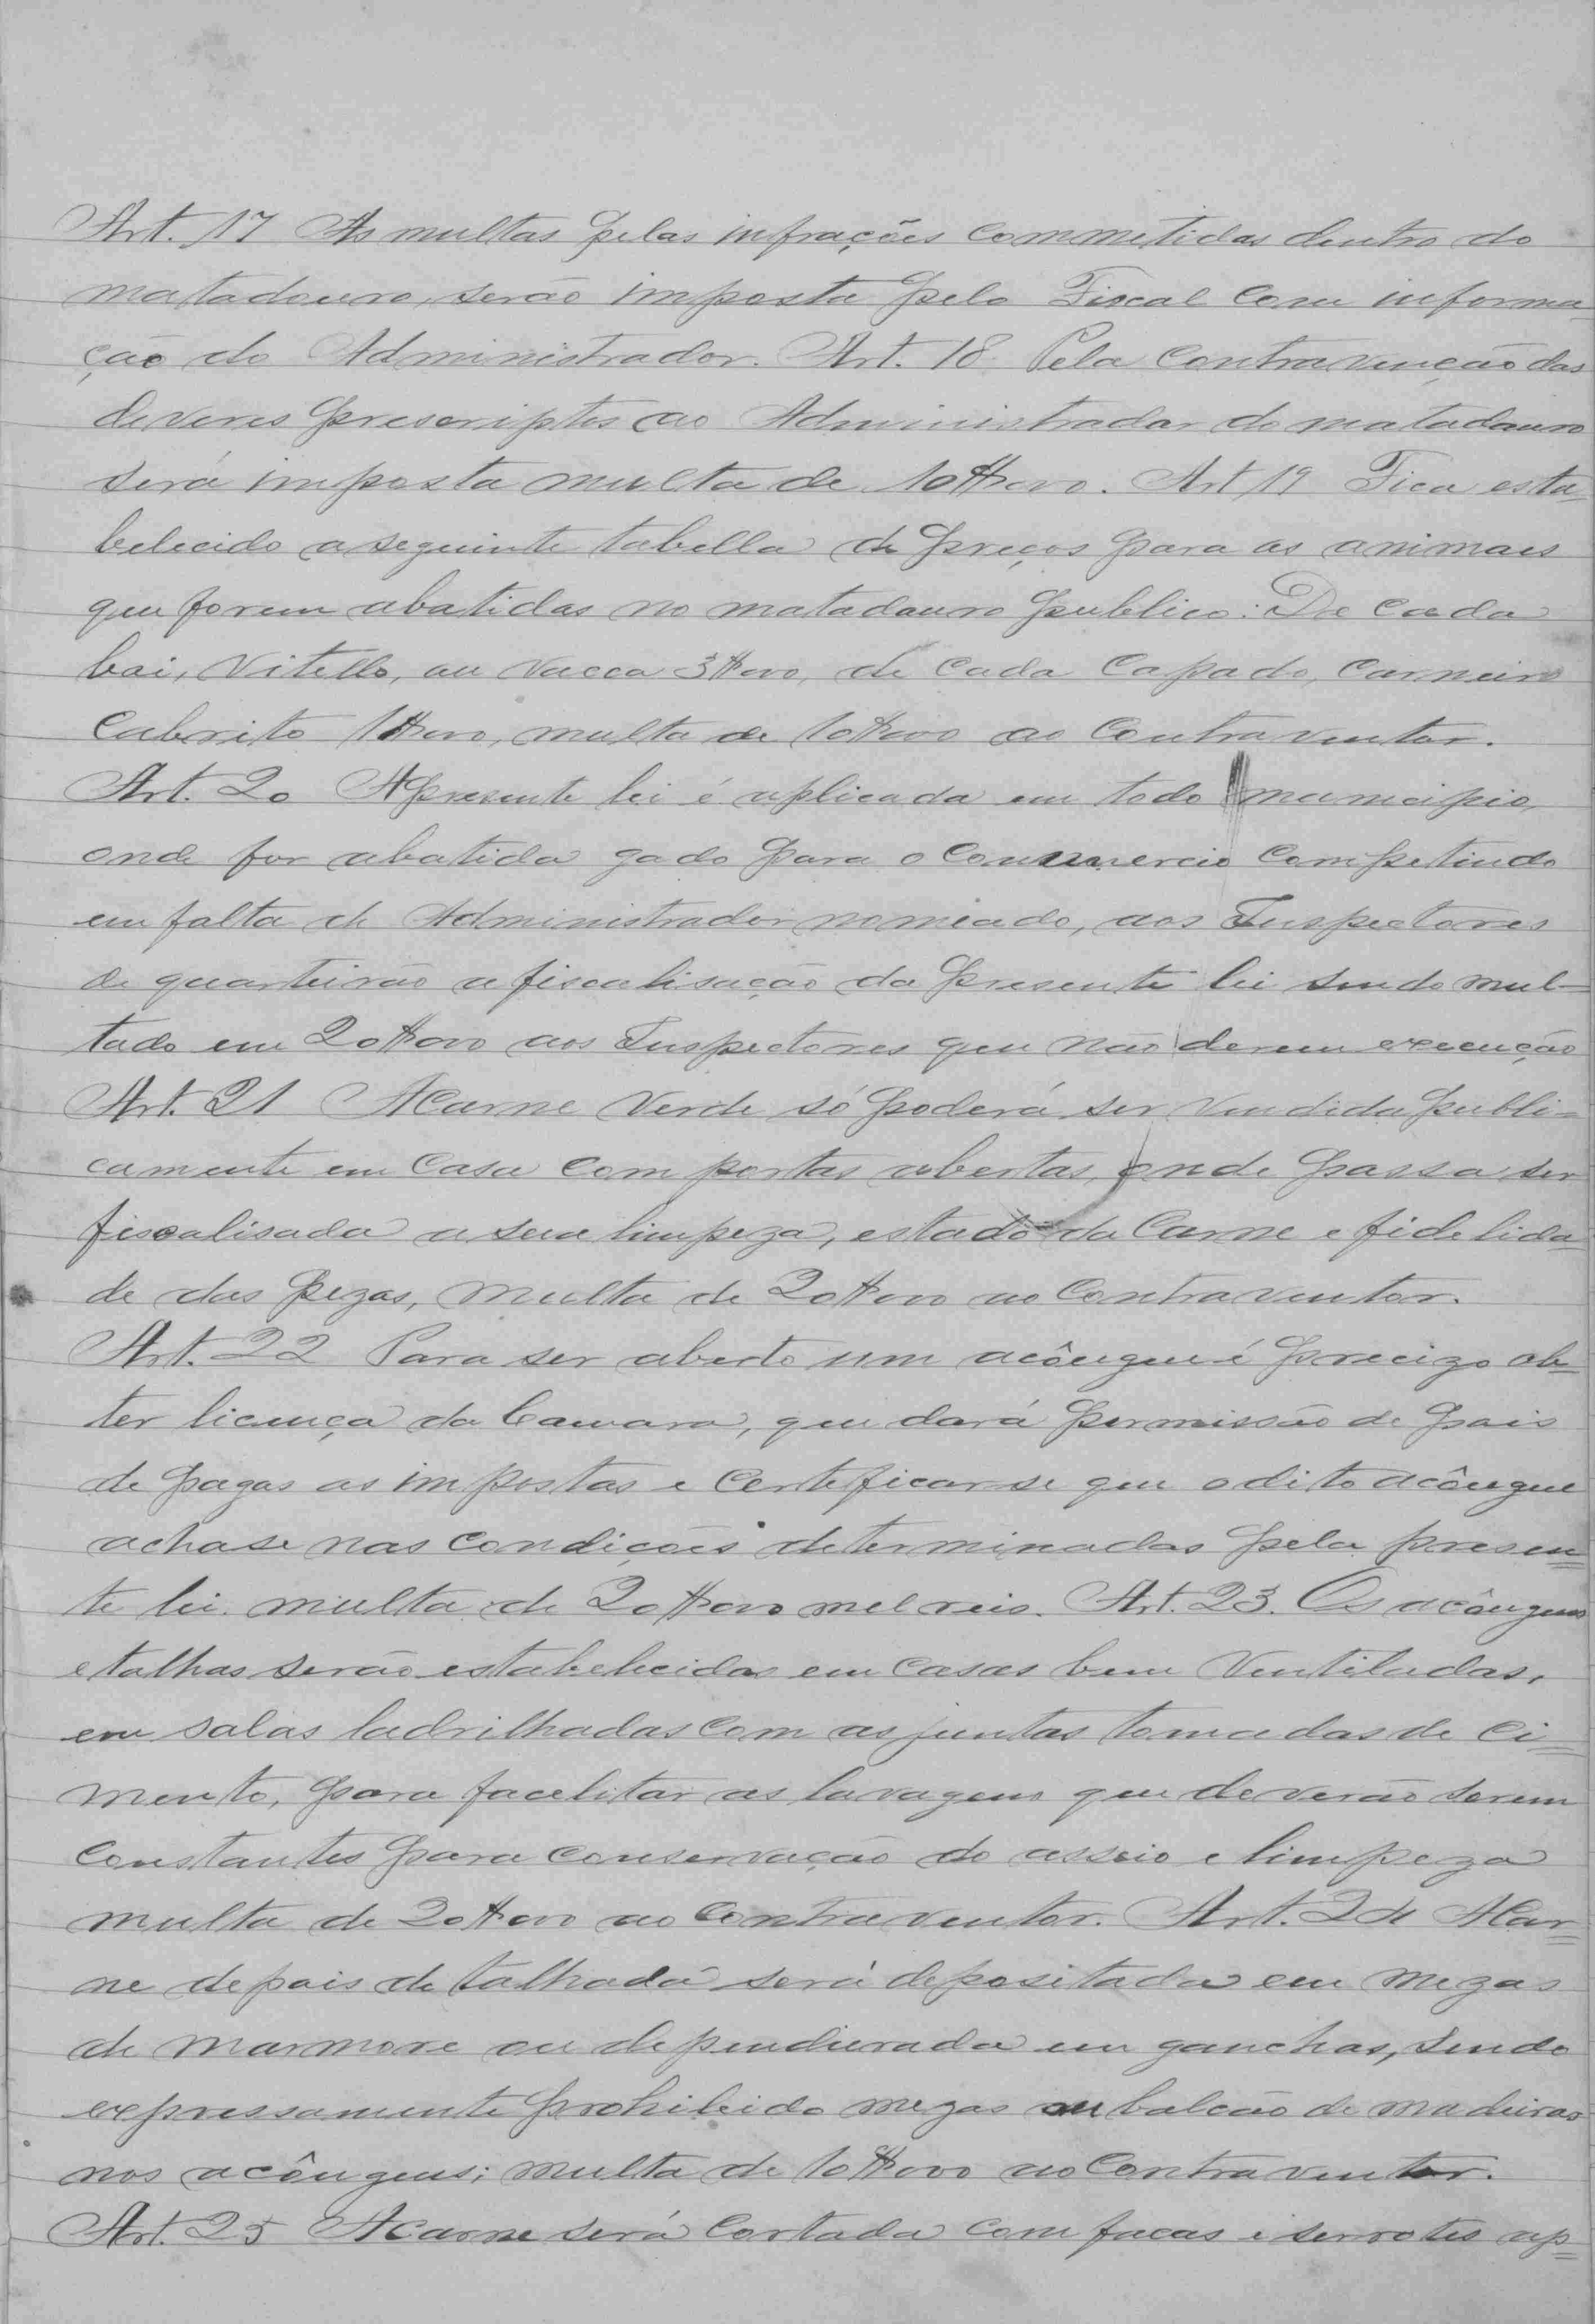 Art. 17 As multas pelas infrações commetidas dentro do
matadouro, serão imposta pelo Fiscal com informa
ção do Administrador. Art. 18 Pela contravenção dos
deveres prescriptos ao Administrador do matadouro
será imposta multa de 10$000. Art 19 Fica esta-
belecido a seguinte tabella de preços para os animaes
que forem abatidos no matadouro publico: De cada
boi, vitello, ou vacca 3$000, de cada capado, carneiro
cabrito 1$000, multa de 10$000 ao contraventor.
Art. 20 A presente lei é aplicada em todo municipio,
onde for abatida gado para o commercio competindo
em falta de Administrador nomeado, aos Inspectores
de quarteirão a fiscalisação da presente lei sendo mul-
tado em 20$000 aos Inspectores que não derem execução
Art. 21 A carne verde só poderá ser vendida publi-
camente em casa com portas abertas, onde possa ser
fiscalisada a sua limpeza, estado da carne e fidelida-
de das pezas, multa de 20$000 ao contraventor.
Art. 22 Para ser aberto um acôugue é precizo ob-
ter licença da Camara, que dará permissão de pois
de pagos os impostos e certeficar se que o dito acôugue
achase nas condições determinadas pela presen=
te lei. multa de 20$000 mel reis. Art. 23. Os acôugues
e talhos serão estabelecidos em casas bem ventiladas,
em salas ladrilhadas com as juntas tomadas de ci=
mento, para facelitar as lavagens que deverão serem
constantes para conservação do asseio e limpeza
multa de 20$000 ao contraventor. Art. 24 A car=
ne depois de talhada será depositada em mezas
de marmore ou dependurada em ganchos, sendo
expressamente prohibido mezas ou balcão de madeiras
nos acôugues; multa de 10$000 ao contraventor.
Art. 25 A carne será cortada com facas e serrotes ap=